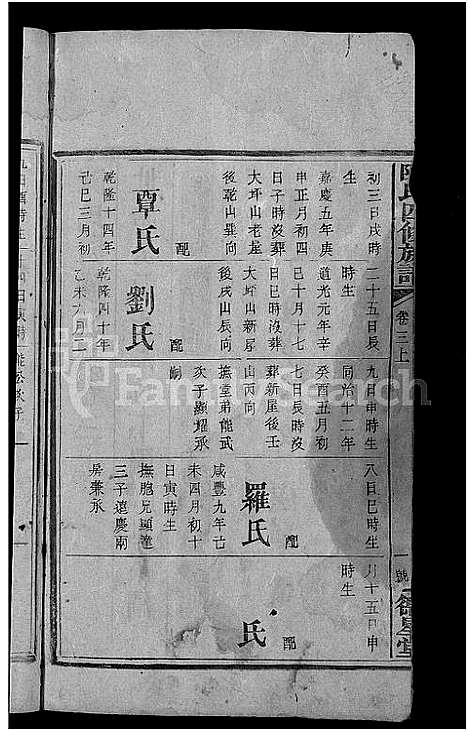 氏四修族譜
卷三上
初三日戌時
生
嘉慶五年庚
申正月初四
日子時沒葬
大坪山老屋
後乾山巽向
配
覃氏
乾隆十四年
己巳三月初
二十五日辰
時生
道光元年辛
巳十月十七
日巳時沒葬
大坪山新屋
後戌山辰向
配
劉氏
乾隆四十年
乙未六月二
九日申時生
同治十二年
癸酉五月初
七日辰時沒
葬新屋後壬
山丙向
撫堂弟能武
次子顯耀承
嗣
八日巳時生
配
羅氏
咸豐九年己
未四月初十
日寅時生
撫胞兄顯達
三子遠慶兩
房兼承
月十五日申
時生
配
氏
FamilySearch